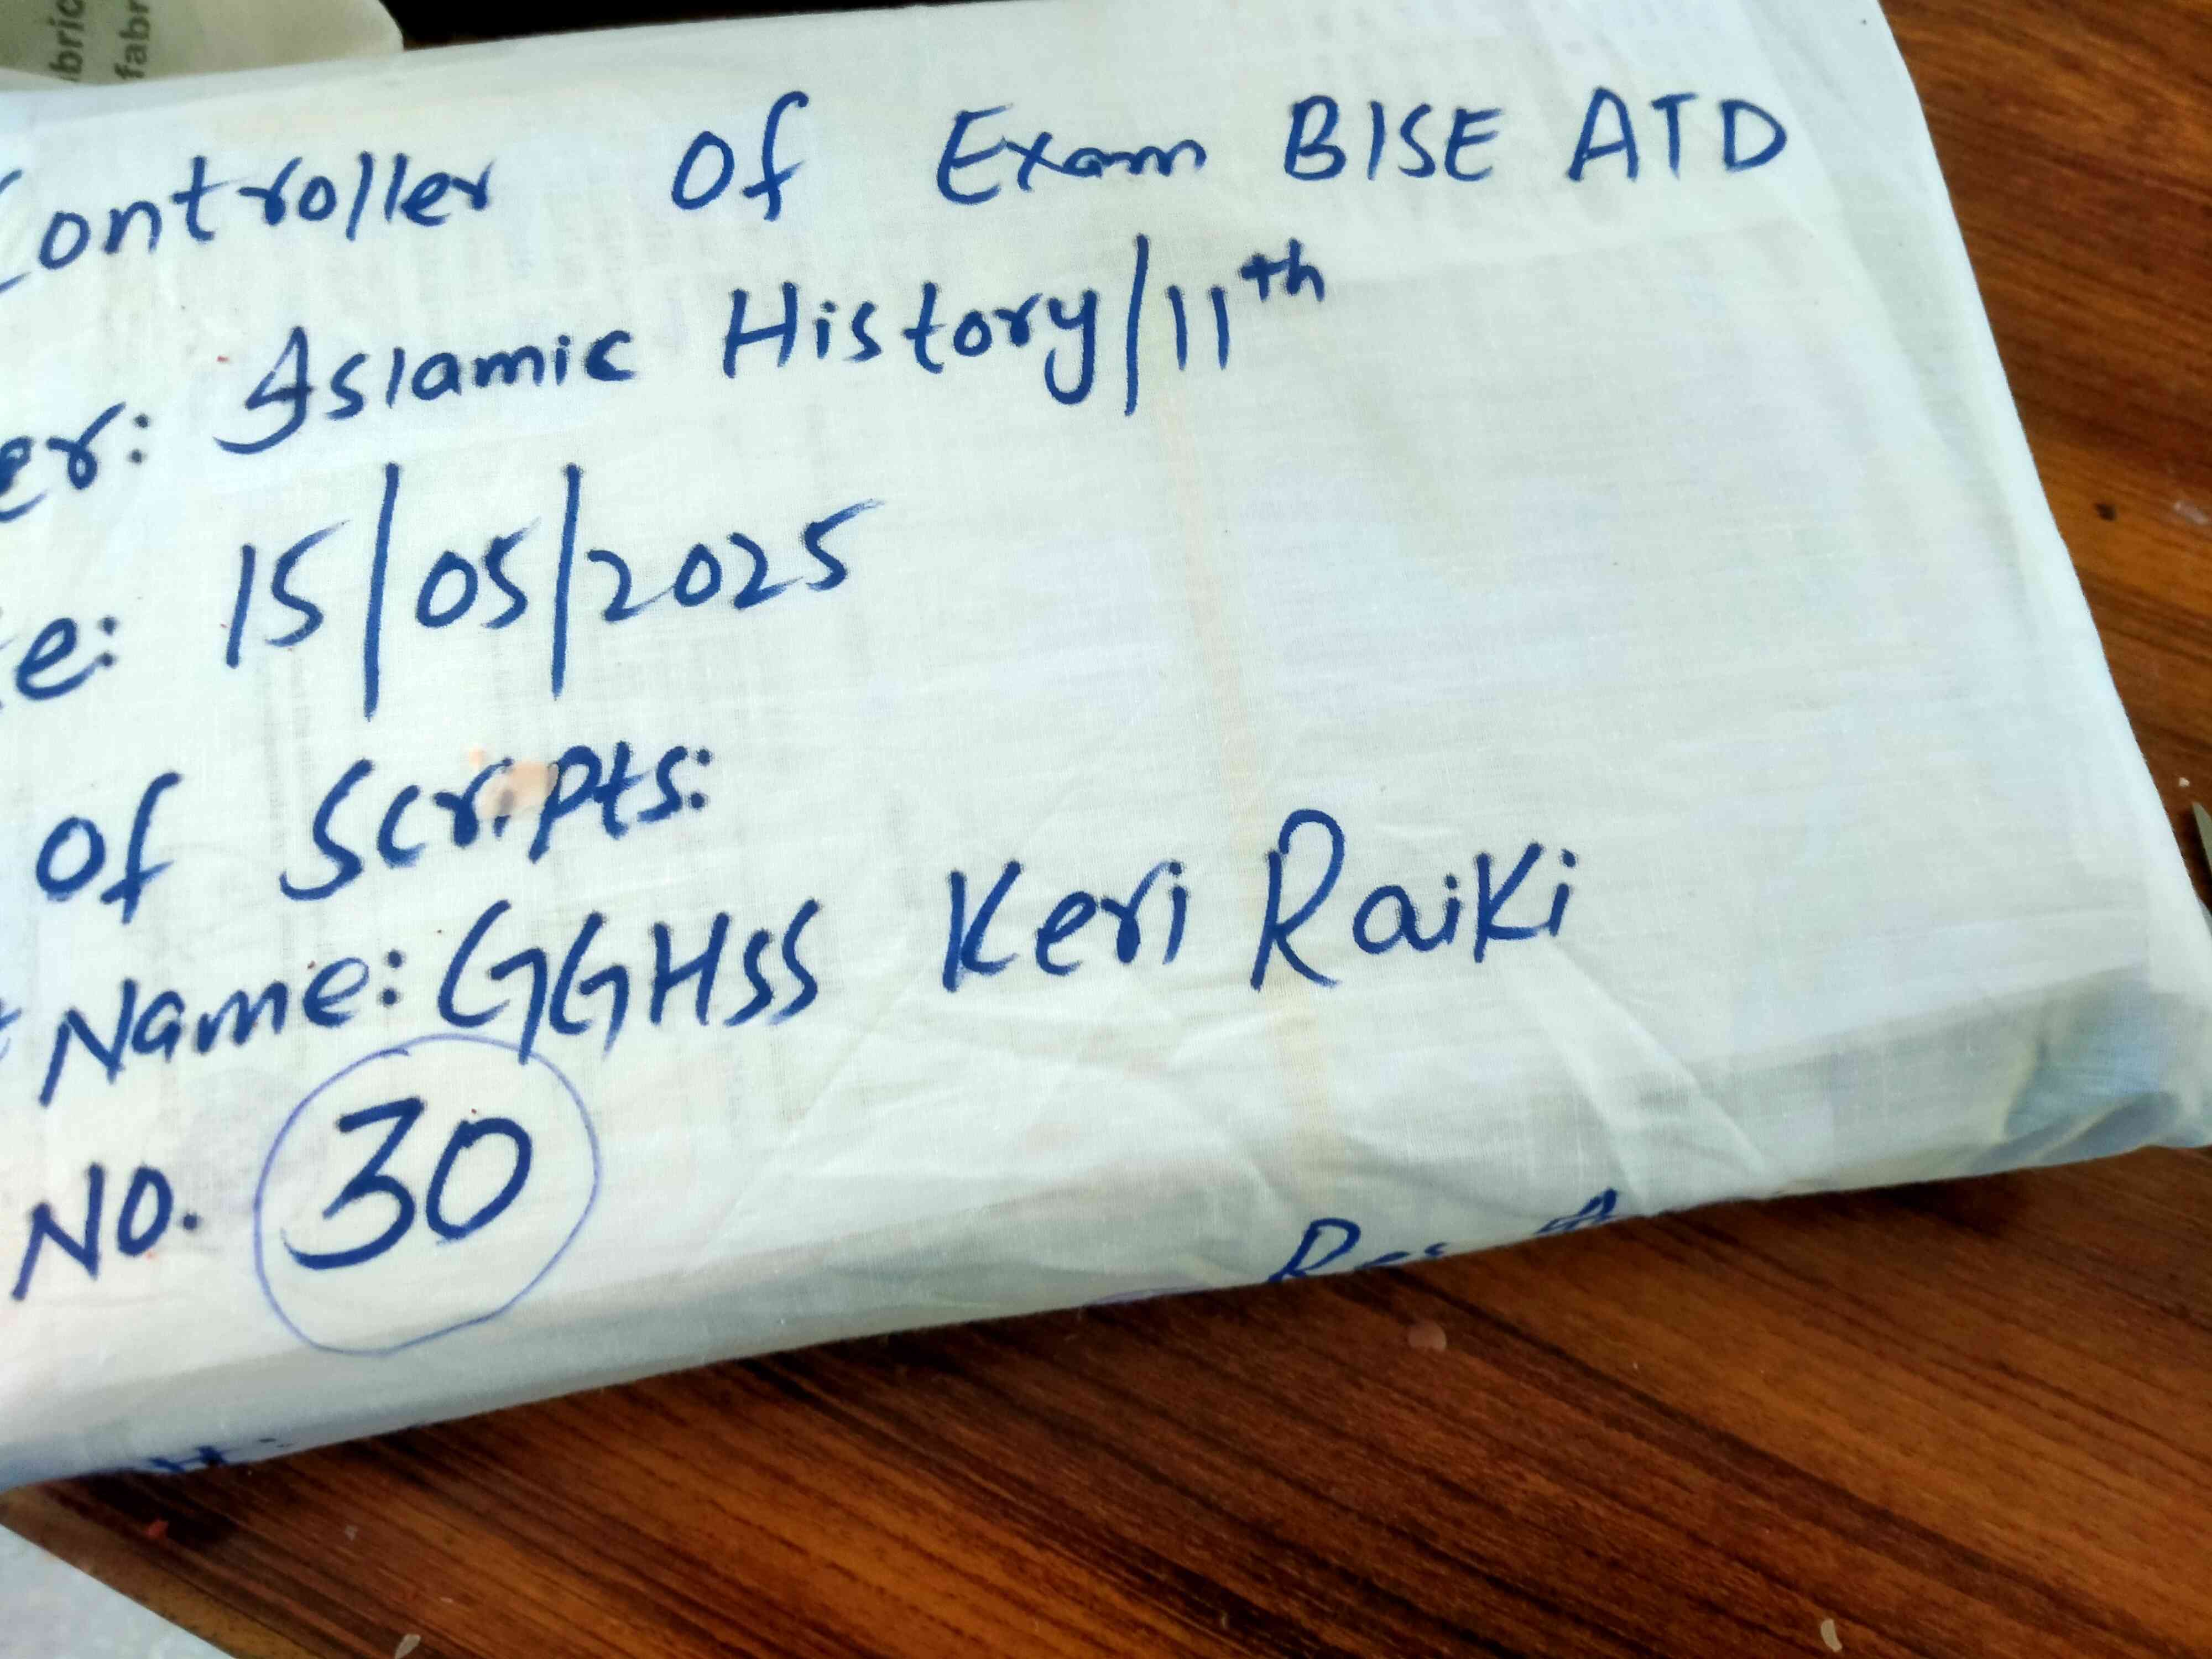 bric
fabr
Controller Of Exam BISE ATD
er: Islamic History/11th
e: 15/05/2025
of Scripts:
Name: GGHSS Keri Raiki
NO. 30